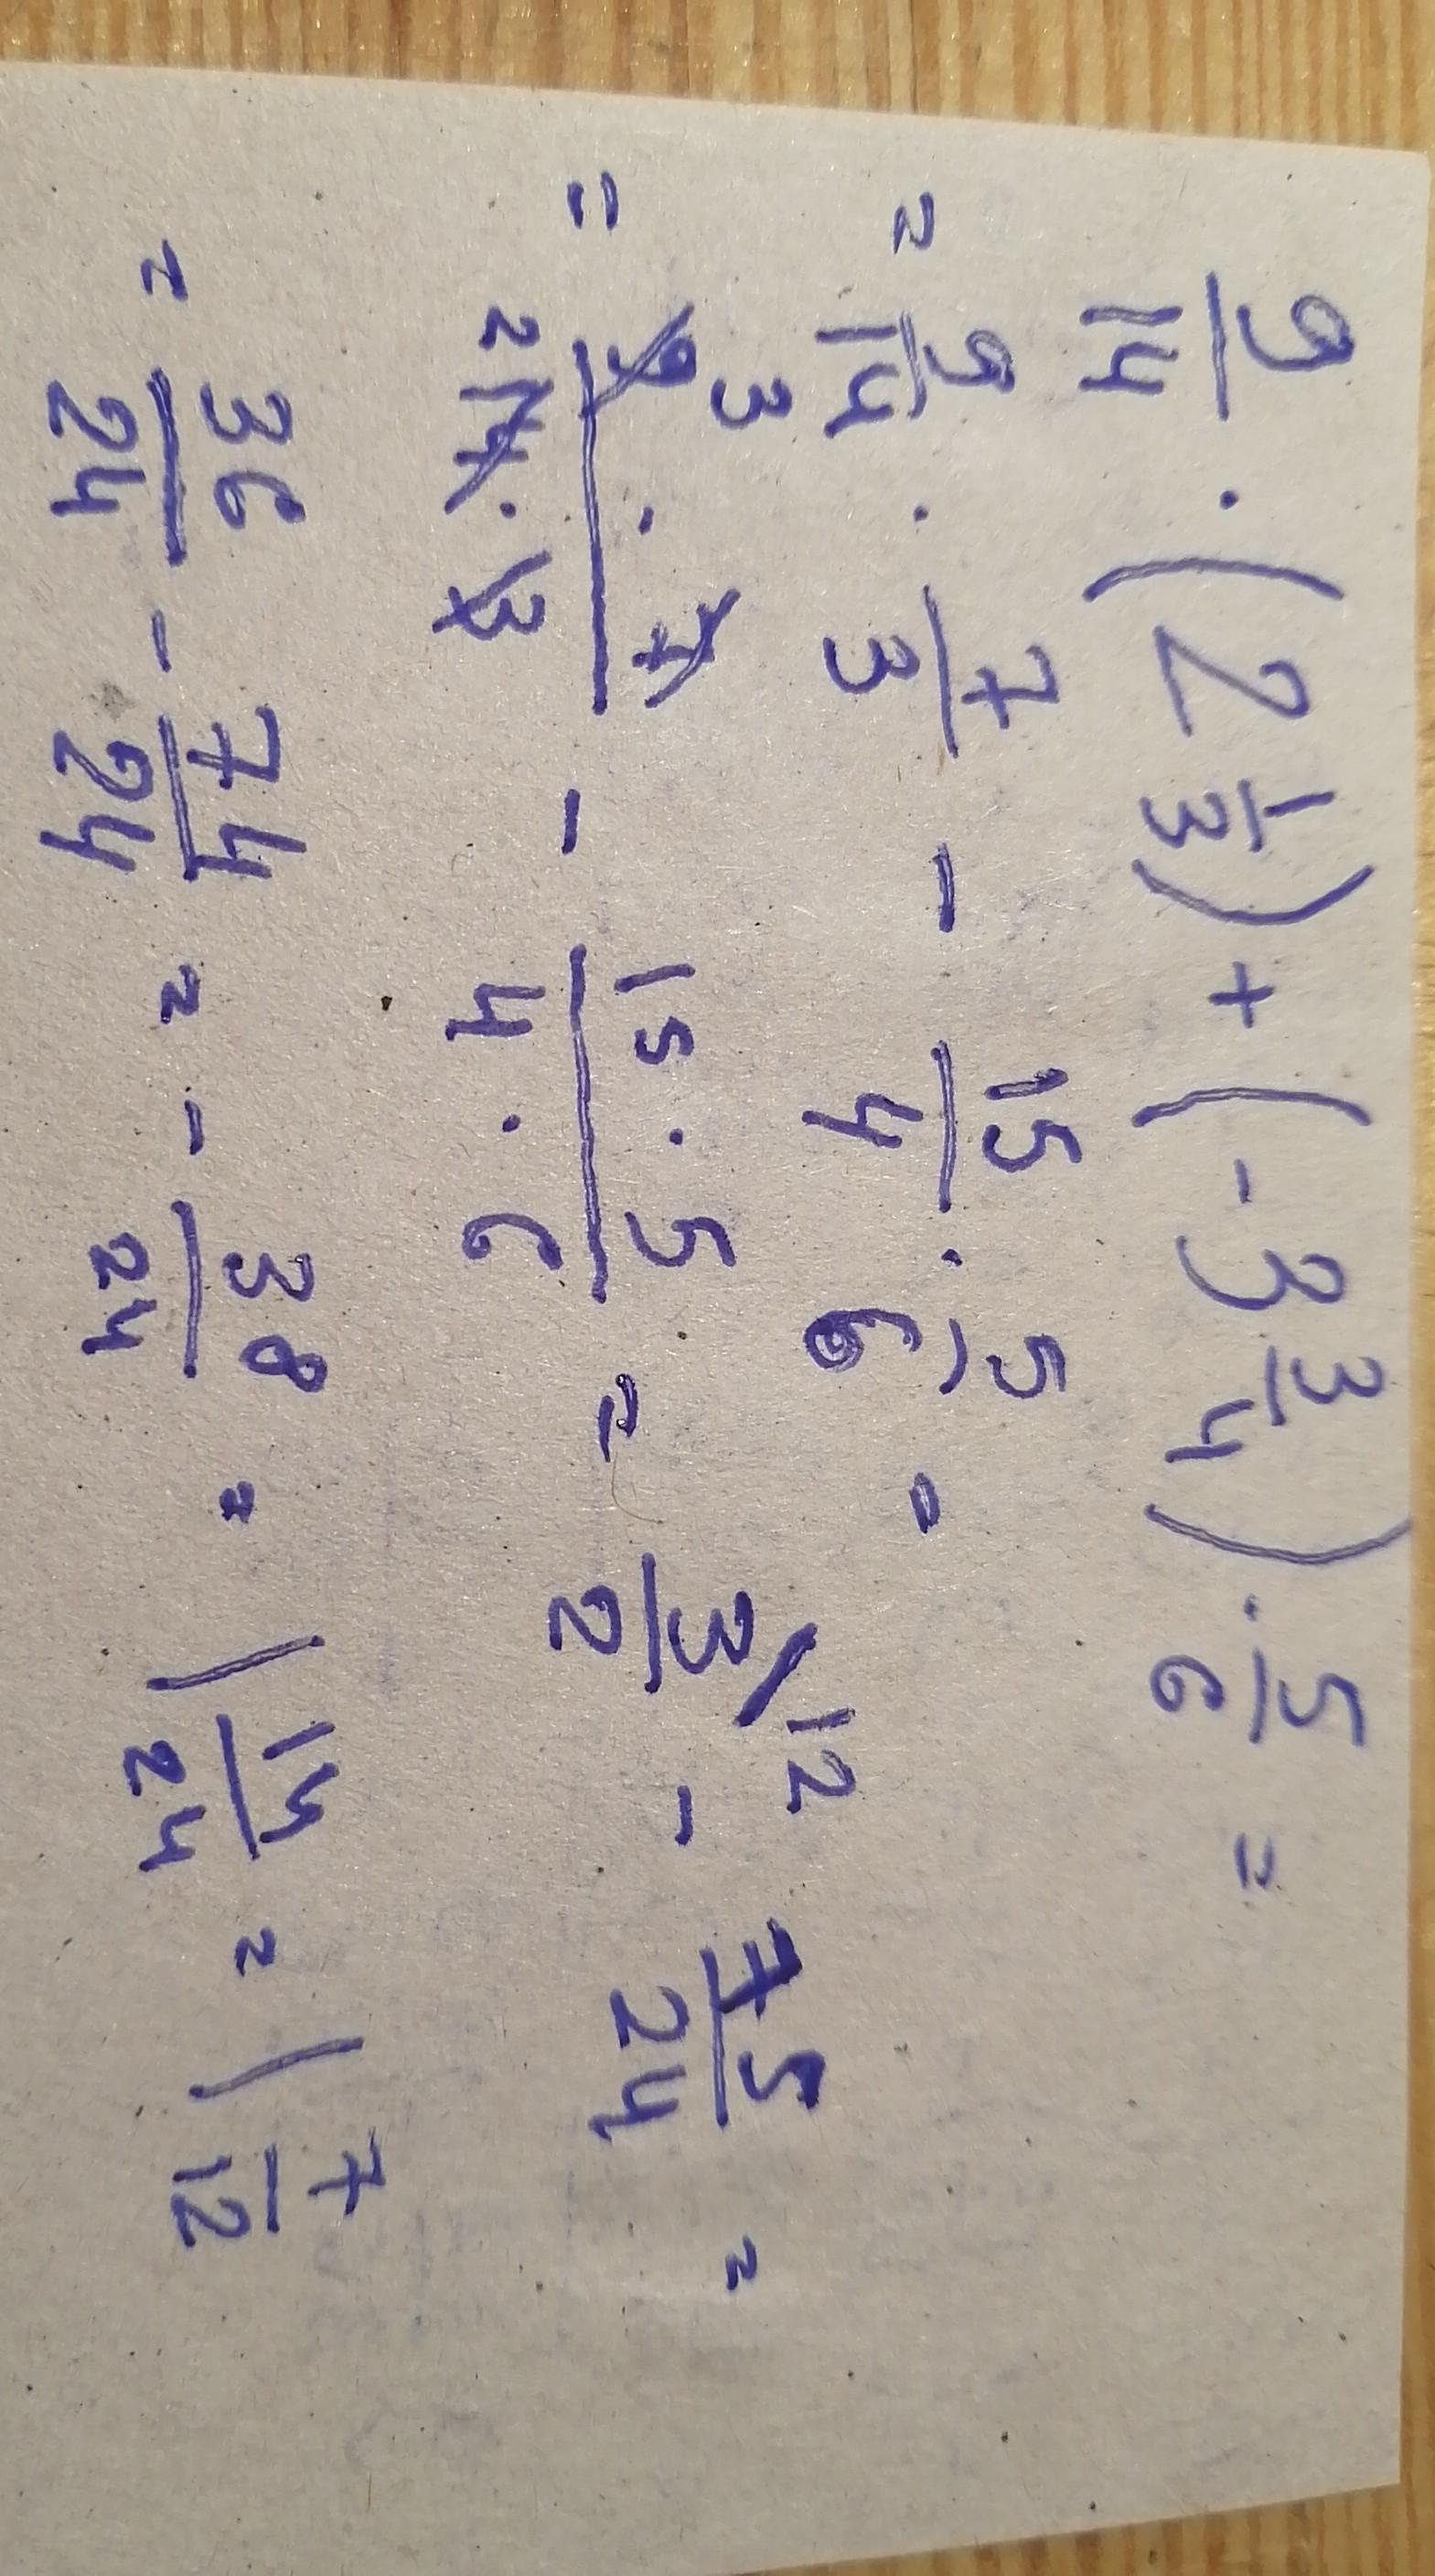 9/14 · (2 1/3) + (- 3 3/4) · 5/6 =
= 9/14 · 7/3 - 15/4 · 5/6 =
= 9 3 · 7 / 2 14 · 3 - 15 · 5 / 4 · 6 = 3/2 \12 - 75/24 =
= 36/24 - 74/24 = - 38/24 = 1 14/24 = 1 7/12